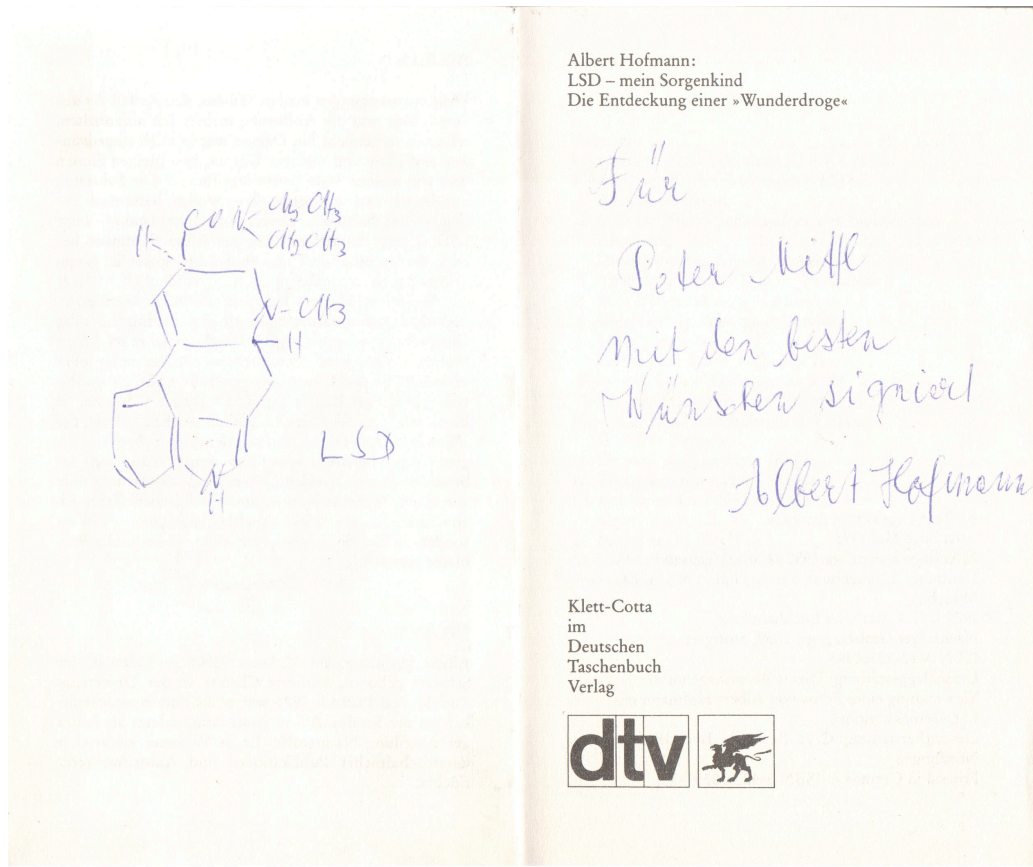 H
CO N
CH2 CH3
CH2 CH3
N-CH3
H
N
H
LSD
Albert Hofmann:
LSD – mein Sorgenkind
Die Entdeckung einer »Wunderdroge«
Für
Peter Mittl
mit den besten
Wünschen signiert
Albert Hofmann
Klett-Cotta
im
Deutschen
Taschenbuch
Verlag
dtv